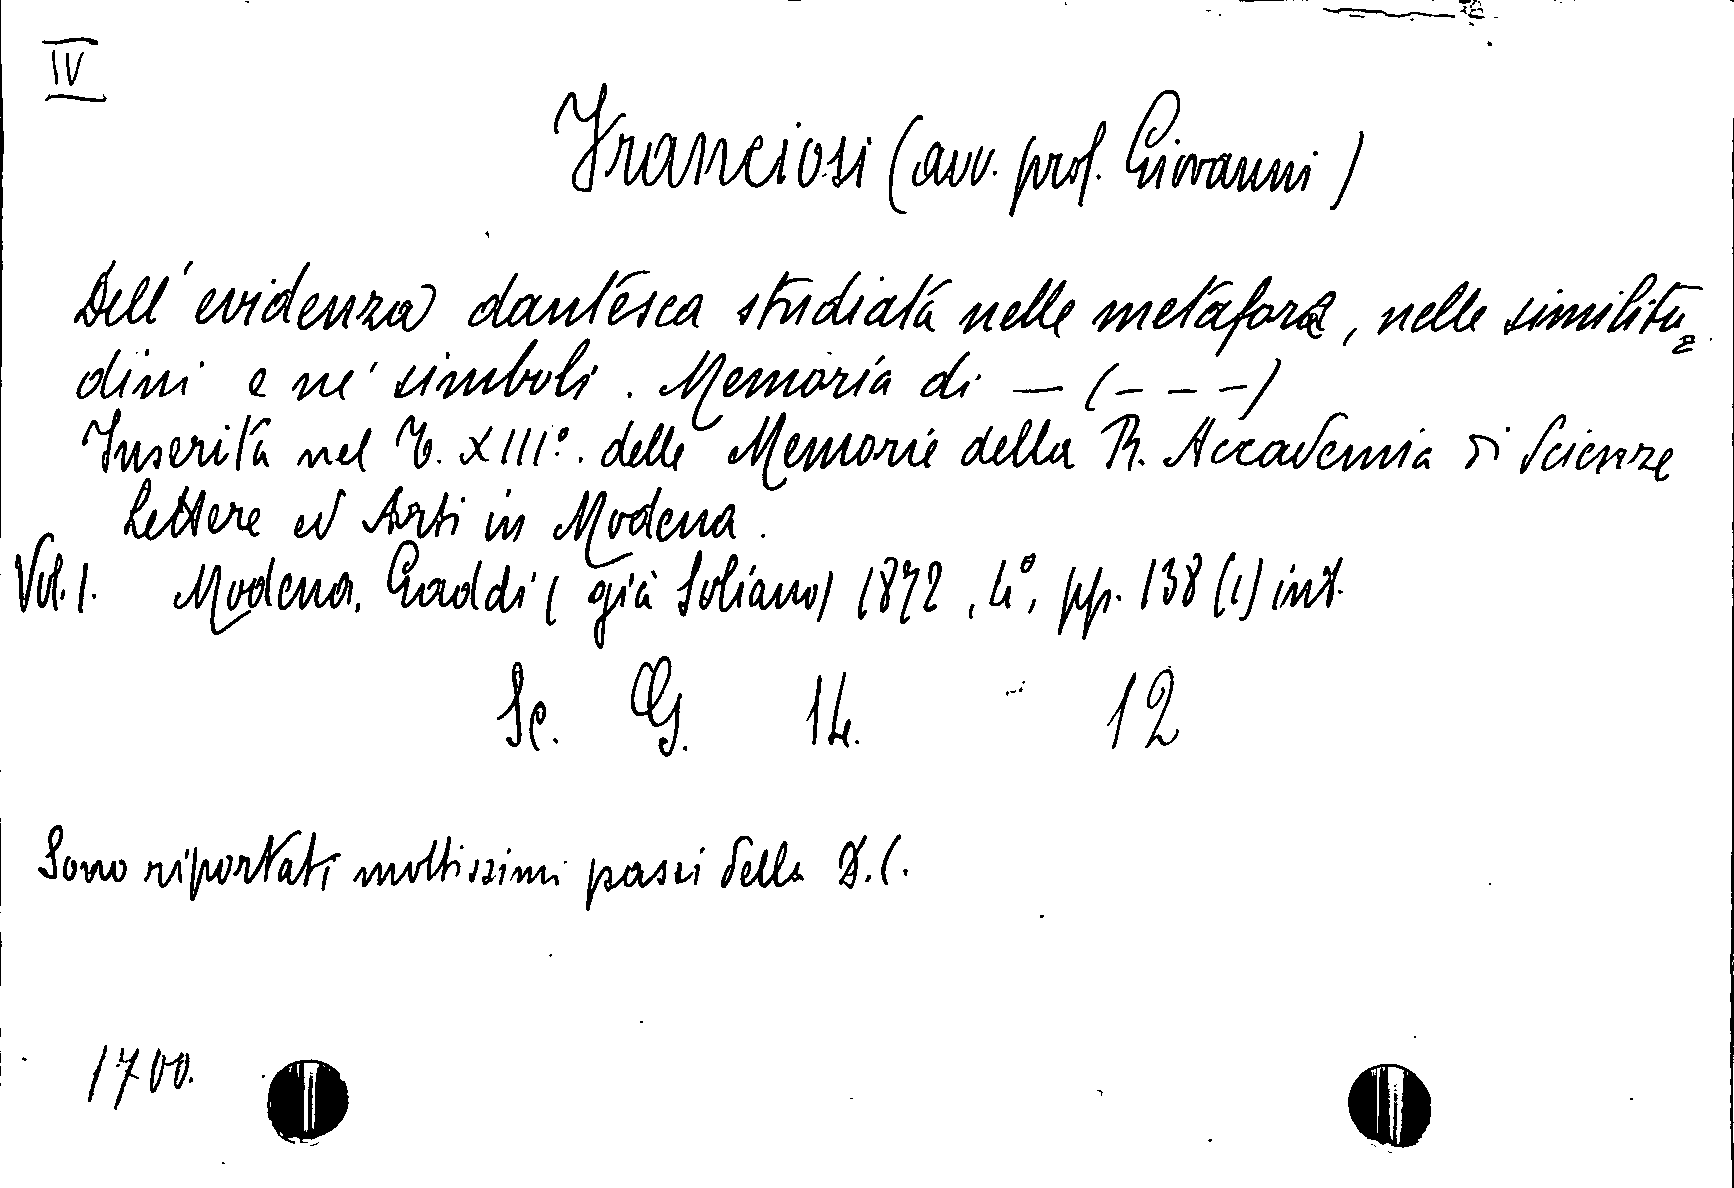 IV
Franciosi (avv. prof. Giovanni)
Dell'evidenza dantesca studiata nelle metafore, nelle similitu=
dini e ne' simboli. Memoria di — (– – –)
Inserita nel T. XIII°. delle Memorie della R. Accademia di Scienze
Lettere ed Arti in Modena.
Vol. 1. Modena, Gaddi (già Soliano) 1872, 4°, pp. 138 (1) int.
Sc. G. 14. 12
Sono riportati moltissimi passi della D.C.
1700.